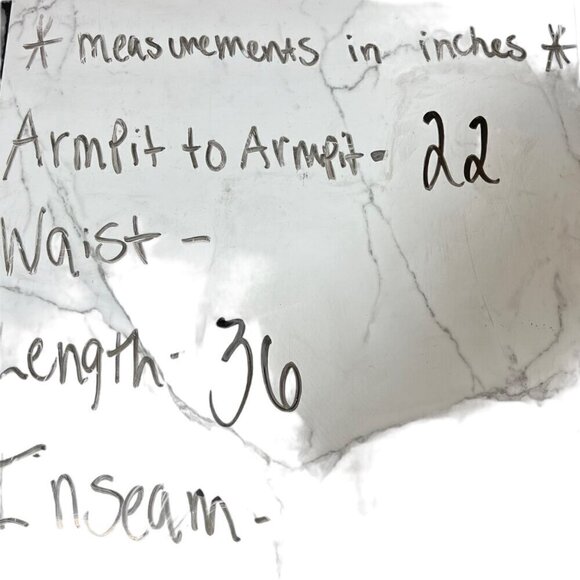 * measurements in inches *
ArmPit to Armpit - 22
Waist -
Length - 36
Inseam -